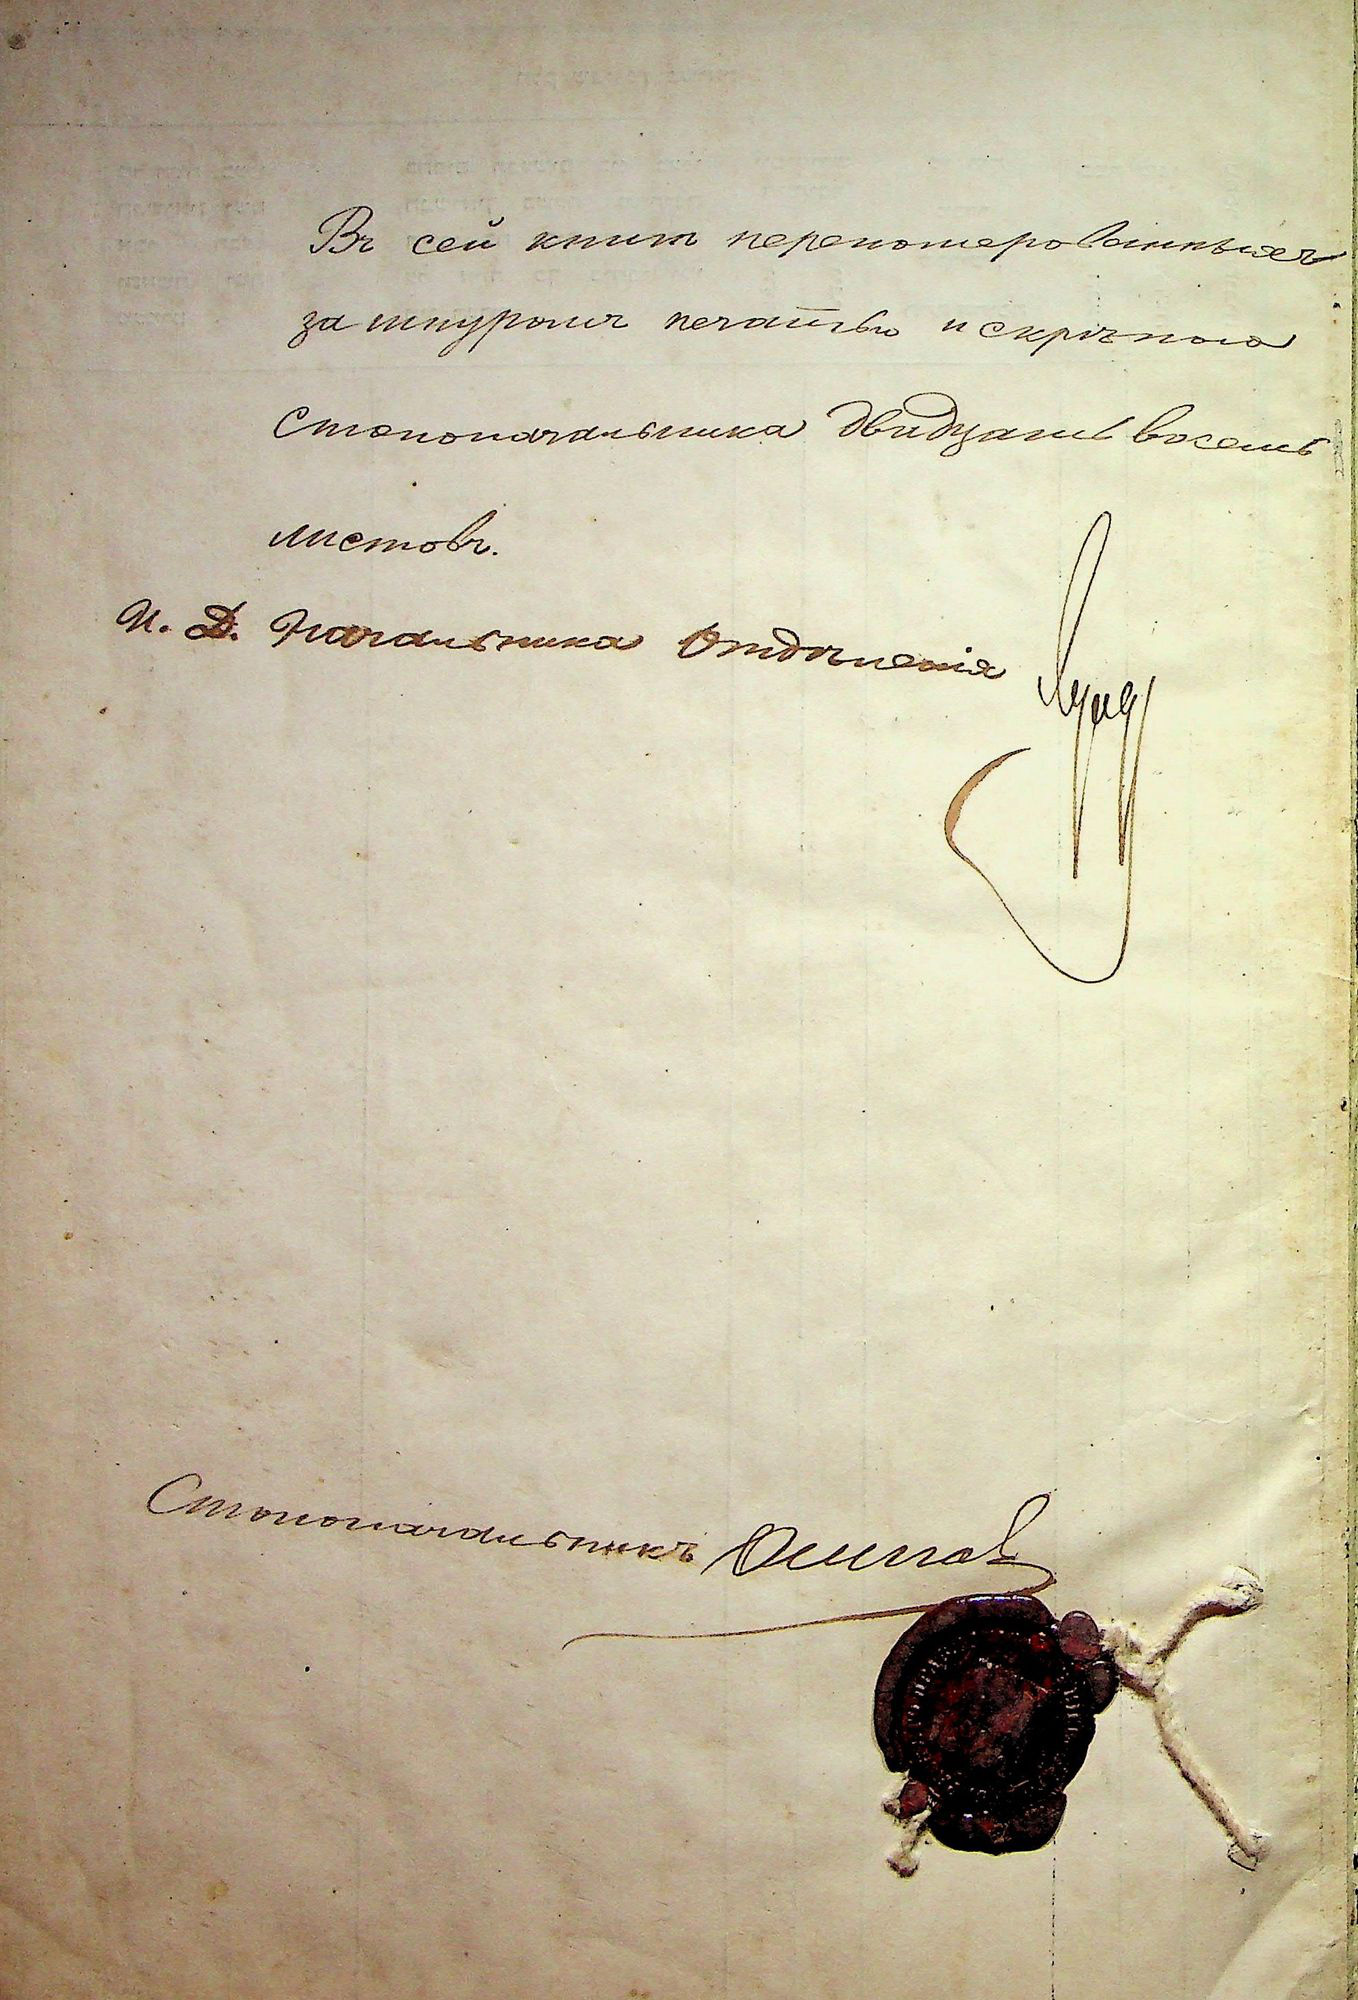 Въ сей книг переномерованныхъ
за шнуромъ печатью и скрѣпою
Столоначальника двадцать восемь
листовъ.
И. Д. Начальника Отдѣленія
Столоначальникъ Осипов